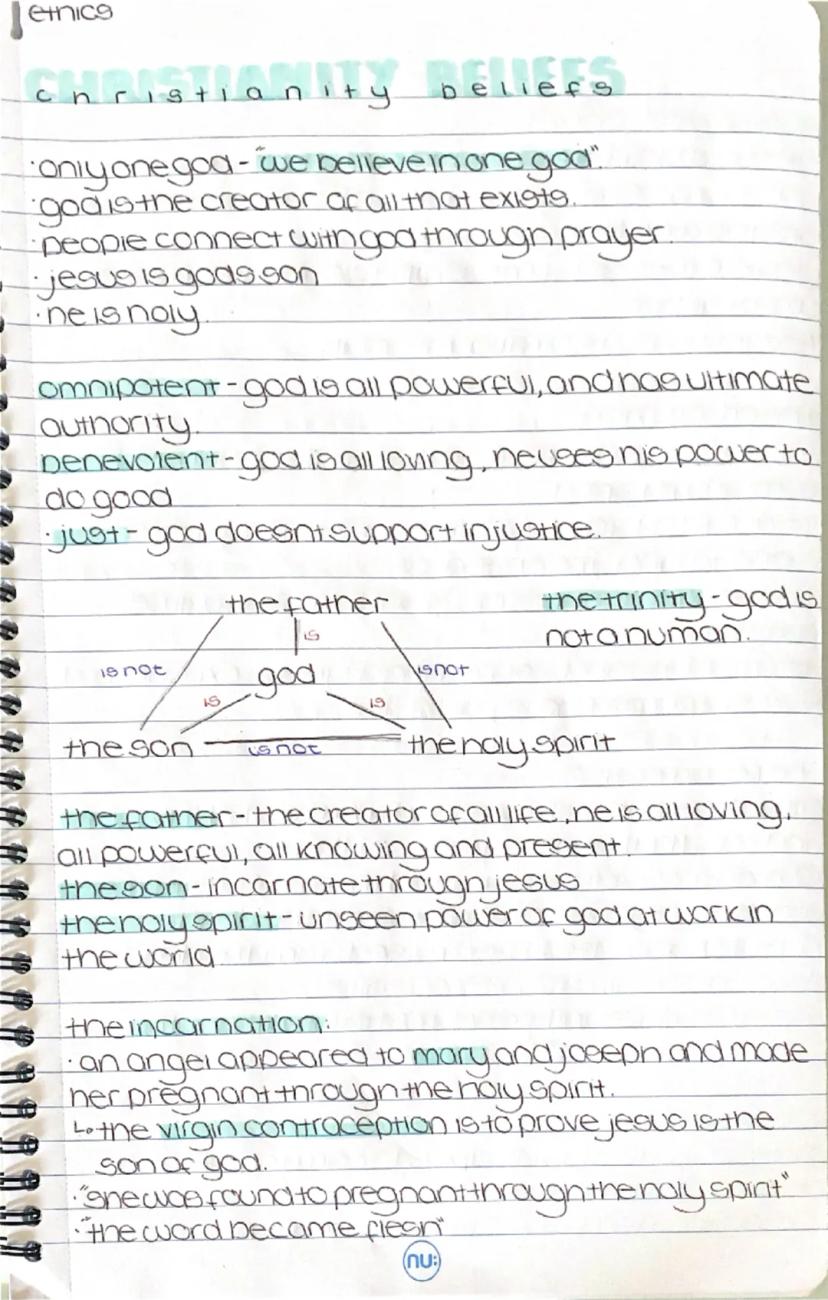 ethics
CHRISTIANITY BELIEFS
christianity beliefs
·only one god - "we believe in one god".
·god is the creator of all that exists.
·people connect with god through prayer.
·jesus is gods son
·he is holy.
omnipotent - god is all powerful, and has ultimate
authority.
benevolent - god is all loving, he uses his power to
do good
·just - god doesnt support injustice.
the father
the trinity - god is
not a human.
is
is not
god
is not
is
is
the son
is not
the holy spirit
the father - the creator of all life, he is all loving,
all powerful, all knowing and present
the son - incarnate through jesus
the holy spirit - unseen power of god at work in
the world
the incarnation:
·an angel appeared to mary and joseph and made
her pregnant through the holy spirit.
↳the virgin contraception is to prove jesus is the
son of god.
·"she was found to pregnant through the holy spirit"
·"the word became flesh"
nu: